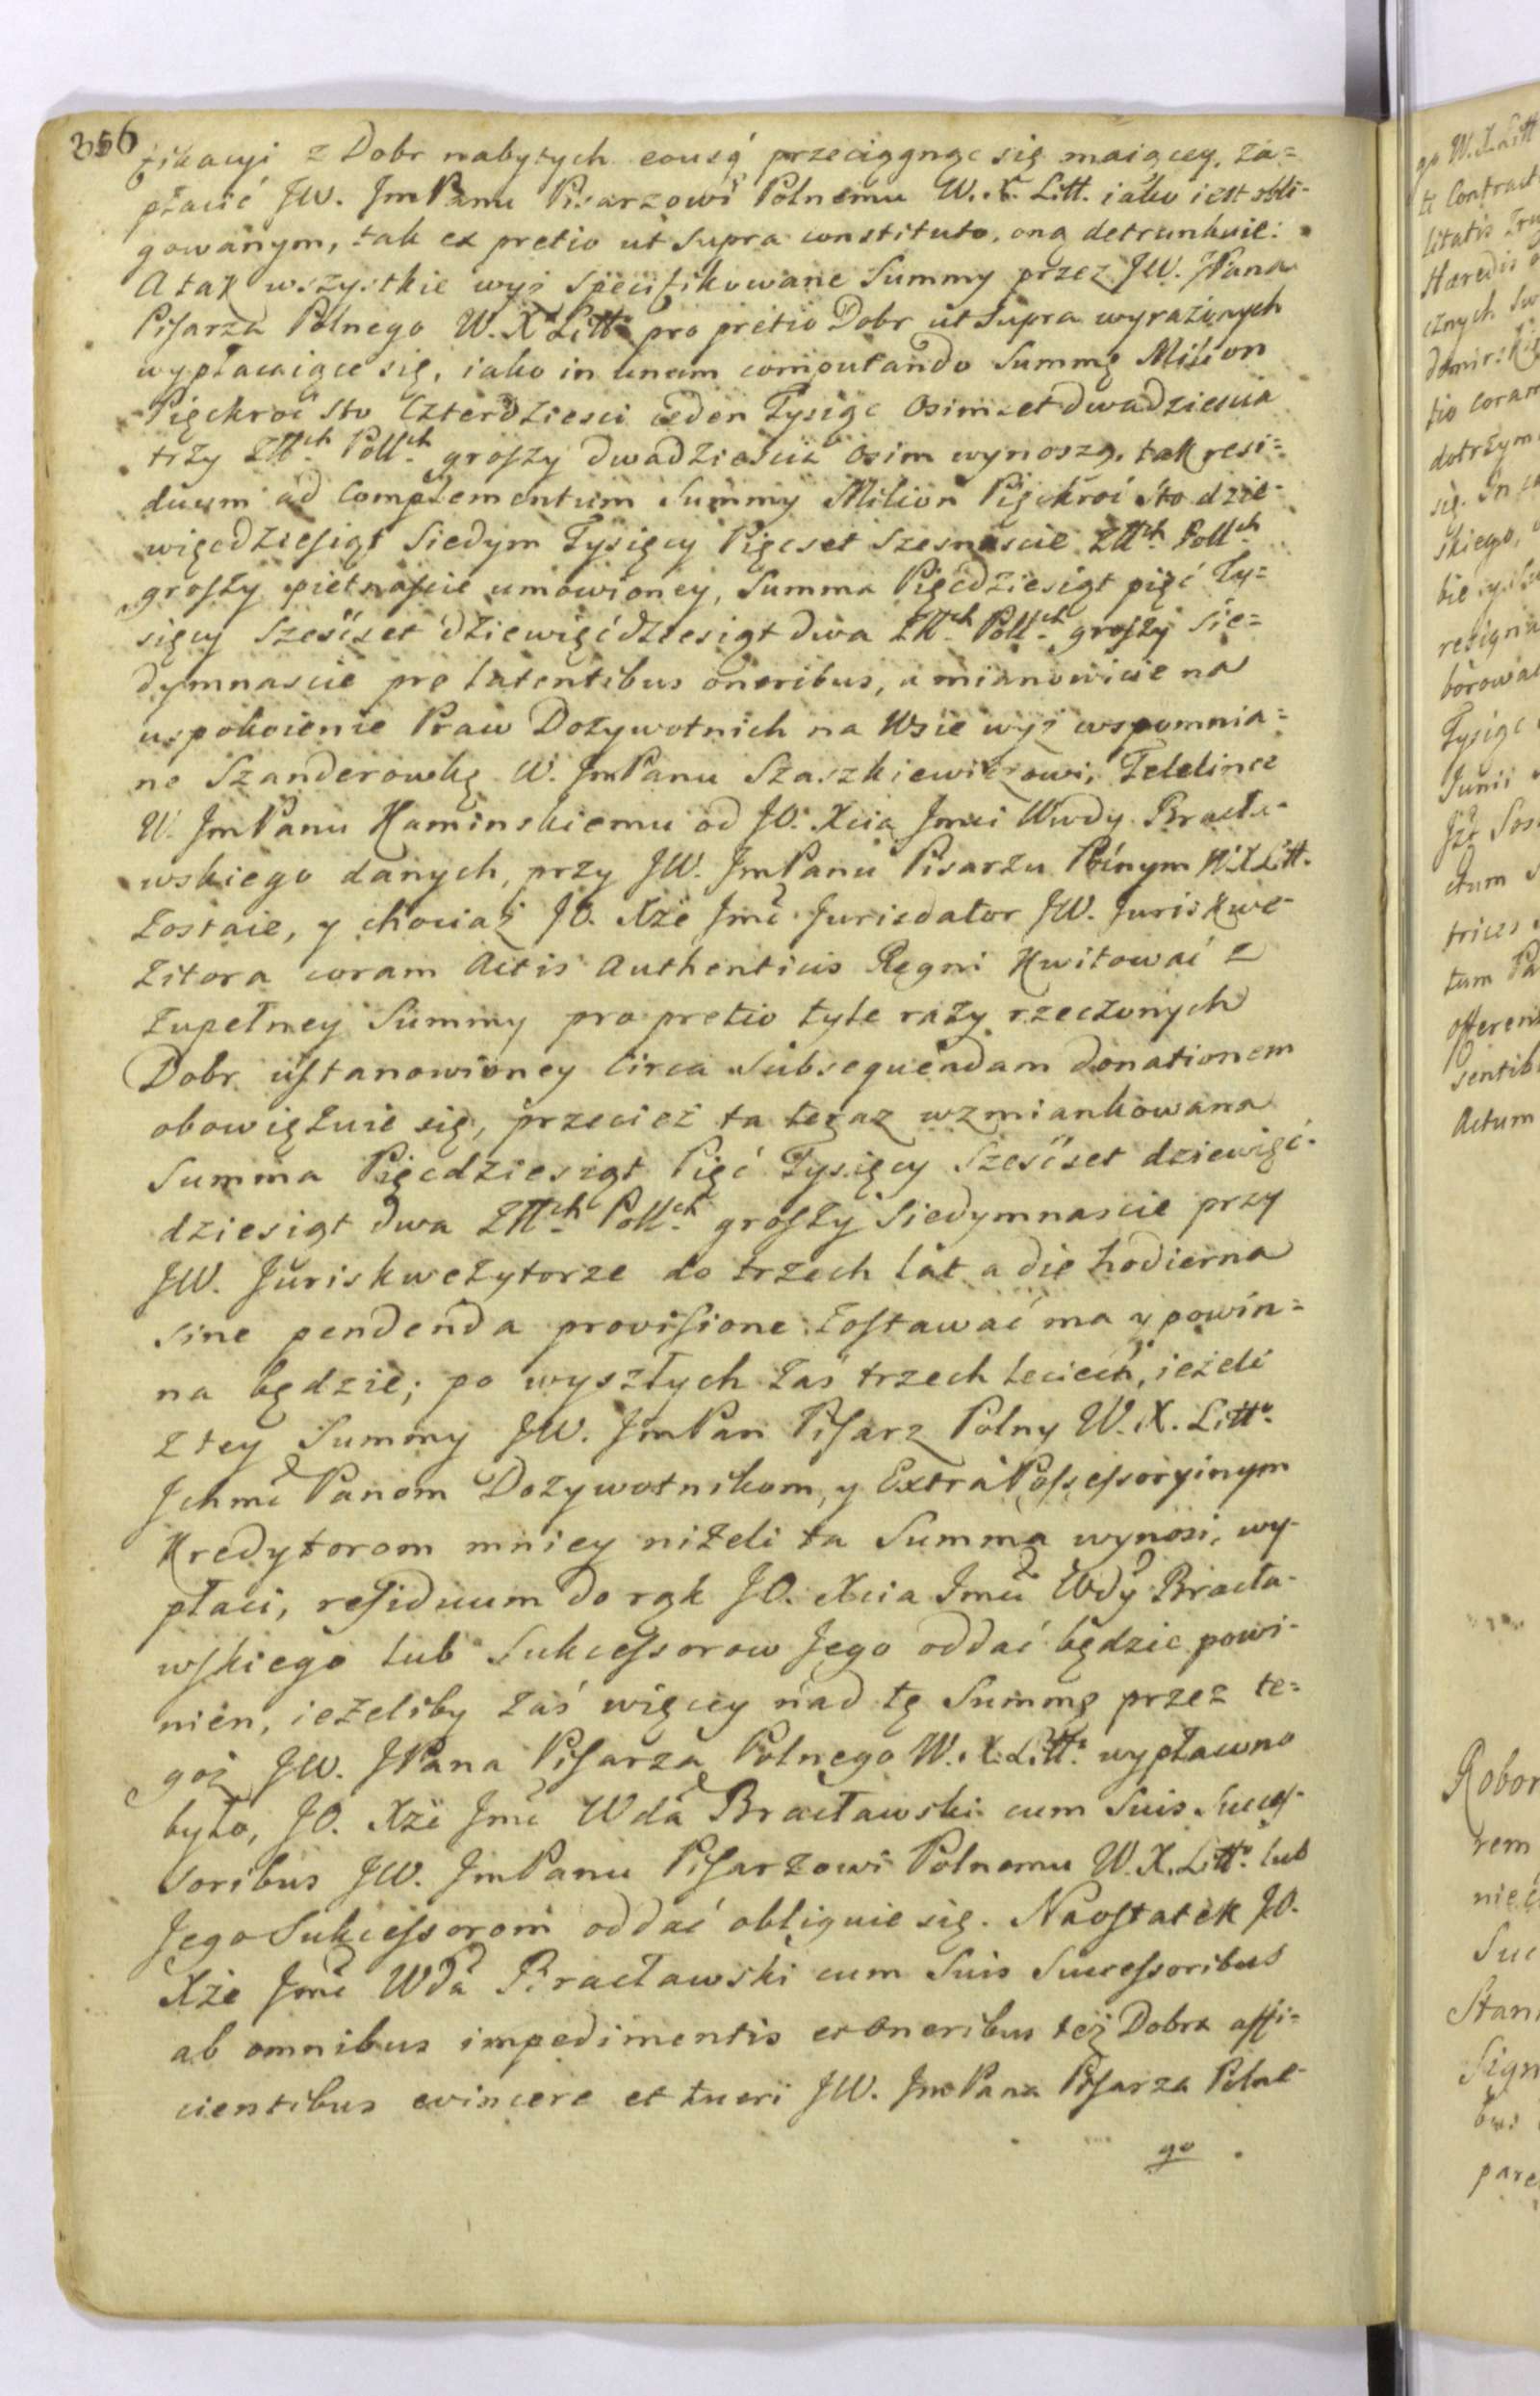 356
fikacyi z Dobr nabytych eousq przeciągnąc się maiącey, za=
płacić JW. JmPanu Pisarzowi Polnemu W. X. Litt. iako iest obli-
gowanym, tak ex pretio ut supra constituto, oną detrunkuie:
A tak wszystkie wyż specifikowane Summy przez JW. JPana
Pisarza Polnego W. X Litt: pro pretio Dobr ut supra wyrażonych
wypłacaiące się, iako in unum computando Summę Milion
Pięckroć Sto Czterdziesci ieden Tysiąc Osimset dwadziescia
trzy Złłch Pollch groszy dwadziescia osim wynoszą, tak resi=
duum ad complementum Summy Milion Pięckroć sto dzie-
więcdziesiąt Siedym Tysięcy Pięcset szesnascie Złłch Pollch
groszy pietnascie umowioney, Summa Pięcdziesiąt pięć Ty=
sięcy szesćset dziewięćdziesiąt dwa Złłch Pollch groszy sie=
dymnascie pro latentibus oneribus, a mianowicie na
uspokoienie Praw Dożywotnich na Wsie wyż wspomnia=
ne Szanderowkę W. JmPanu Szaszkiewiczowi, Telelince
W. JmPanu Kaminskiemu od JO. Xcia Jmci Wwdy Bracła-
wskiego danych, przy JW. JmPanu Pisarzu Polnym W.X.Litt.
zostaie, y chociaż JO. Xże Jmć Jurisdator JW. Juriskwe-
zitora coram Actis Authenticis Regni Kwitować z
zupełney Summy pro pretio tyle razy rzeczonych
Dobr ustanowioney circa subsequendam donationem
obowięzuie się, przecież ta teraz wzmiankowana
Summa Pięcdziesiąt Pięć Tysięcy Szesćset dziewięć-
dziesiąt dwa Złłch Pollch groszy Siedymnascie przy
JW. Juriskwezytorze do trzech lat a die hodierna
sine pendenda provisione zostawać ma y powin=
na będzie; po wyszłych zaś trzech leciech, ieżeli
z tey Summy JW. JmPan Pisarz Polny W. X. Litto
Jchmć Panom Dożywotnikom, y Extra Possessoryinym
Kredytorom mniey niżeli ta Summa wynosi, wy-
płaci, residuum do rąk JO. Xcia Jmci Wdy Bracła-
wskiego lub Sukcessorow Jego oddać będzie powi-
nien, ieżeliby zaś więcey nad tę Summę przez te=
goż JW. JPana Pisarza Polnego W. X. Litt: wypłacono
było, JO. Xże Jmć Wda Bracławski cum Suis Succes-
soribus JW. JmPanu Pisarzowi Polnemu W. X. Litto lub
Jego Sukcessorom oddać obliguie się. Naostatek JO.
Xże Jmć Wda Bracławski cum Suis Successoribus
ab omnibus impedimentis et oneribus też Dobra affi=
cientibus evincere et tueri JW. JmPana Pisarza Polne-
go